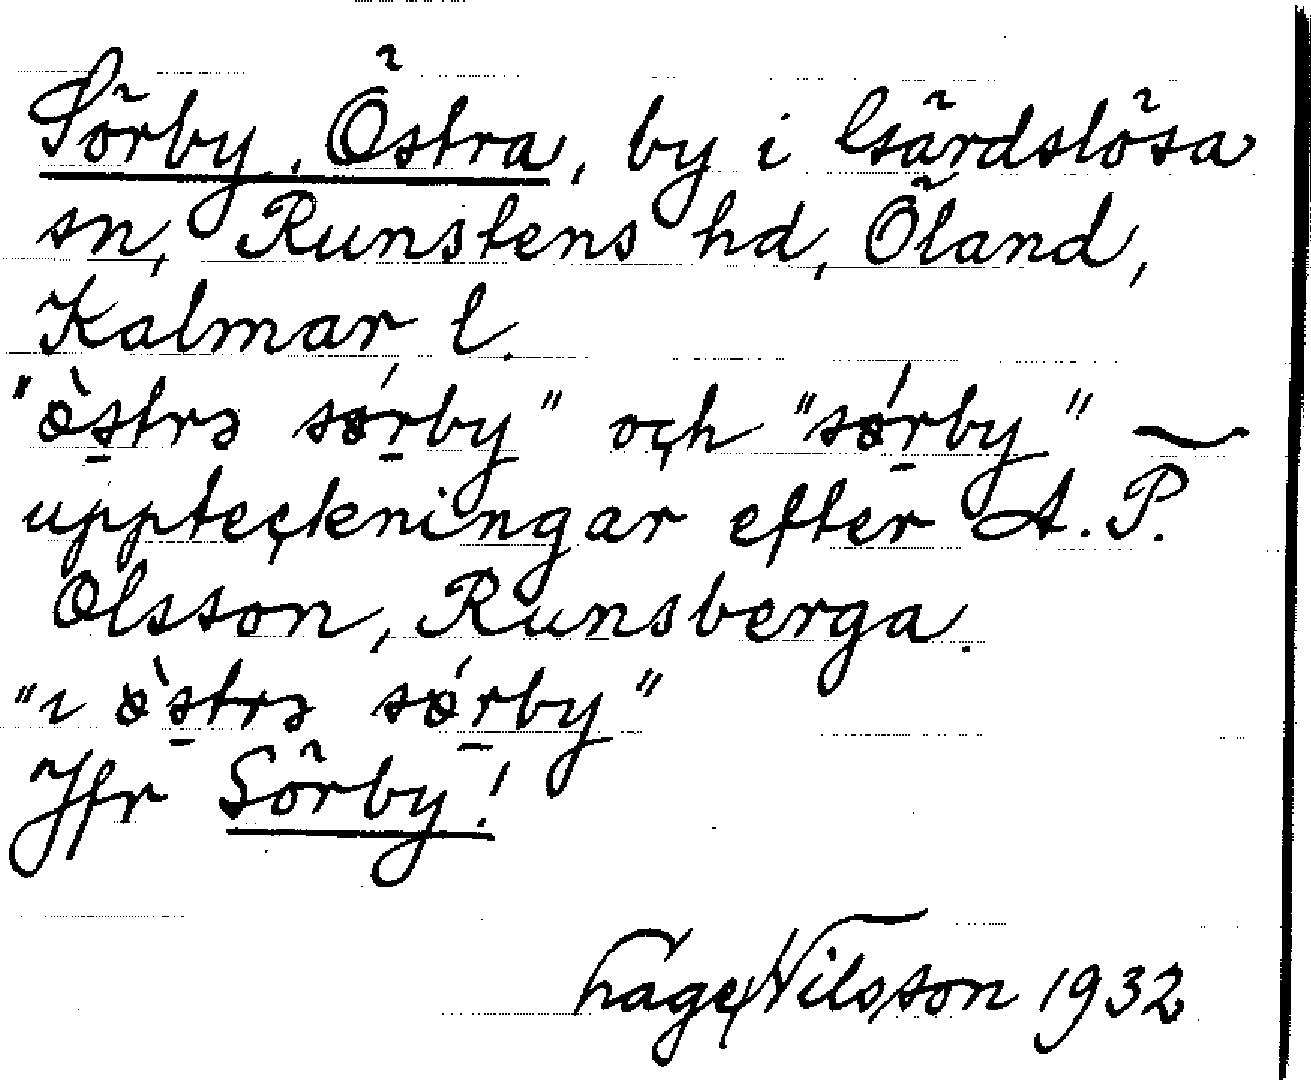 Sörby, Östra, by i Gärdslösa
sn, Runstens hd, Öland,
Kalmar l.
"ø̀s̠trə sǿr̠by" och "sǿr̠by" —
uppteckningar efter A. P.
Olsson, Runsberga.
"ı ø̀s̠trə sǿr̠by"
Jfr Sörby!
Hage Nilsson 1932